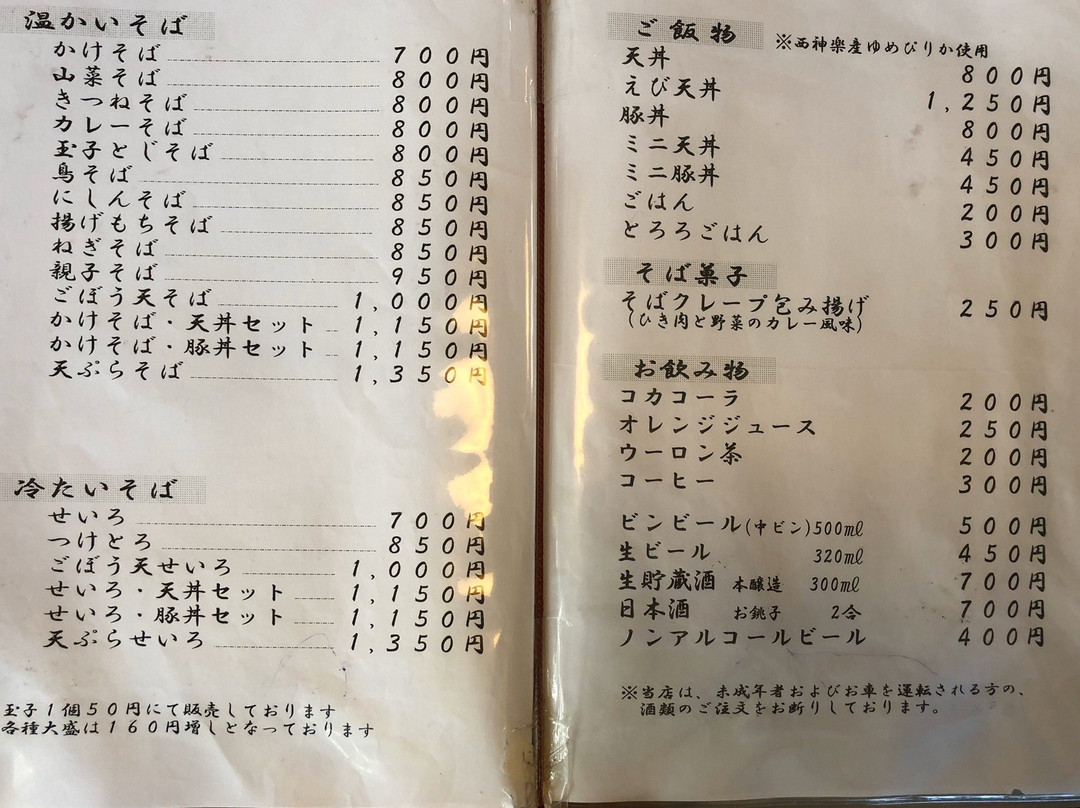 温かいそば
かけそば 700円
山菜そば 800円
きつねそば 800円
カレーそば 800円
玉子とじそば 800円
鳥そば 850円
にしんそば 850円
揚げもちそば 850円
ねぎそば 850円
親子そば 950円
ごぼう天そば 1,000円
かけそば・天丼セット 1,150円
かけそば・豚丼セット 1,150円
天ぷらそば 1,350円
冷たいそば
せいろ 700円
つけとろ 850円
ごぼう天せいろ 1,000円
せいろ・天丼セット 1,150円
せいろ・豚丼セット 1,150円
天ぷらせいろ 1,350円
玉子1個50円にて販売しております
各種大盛は160円増しとなっております
ご飯物 ※西神楽産ゆめぴりか使用
天丼 800円
えび天丼 1,250円
豚丼 800円
ミニ天丼 450円
ミニ豚丼 450円
ごはん 200円
とろろごはん 300円
そば菓子
そばクレープ包み揚げ 250円
(ひき肉と野菜のカレー風味)
お飲み物
コカコーラ 200円
オレンジジュース 250円
ウーロン茶 200円
コーヒー 300円
ビンビール(中ビン)500㎖ 500円
生ビール 320㎖ 450円
生貯蔵酒 本醸造 300㎖ 700円
日本酒 お銚子 2合 700円
ノンアルコールビール 400円
※当店は、未成年者およびお車を運転される方の、
酒類のご注文をお断りしております。